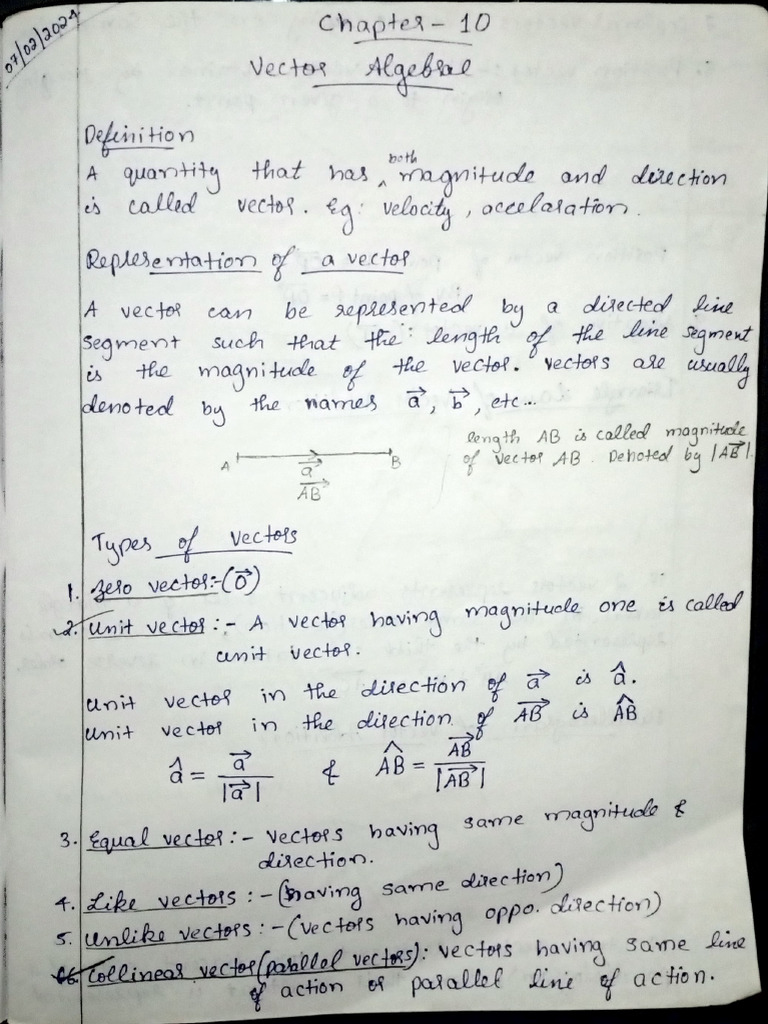 07/02/2024
Chapter - 10
Vector Algebrae
Definition
A quantity that has both magnitude and direction
is called vector. Eg: velocity, accelaration.
Representation of a vector
A vector can be represented by a directed line
segment such that the length of the line segment
is the magnitude of the vector. Vectors are usually
denoted by the names a⃗, b⃗, etc...
length AB is called magnitude
of vector AB. Denoted by |AB⃗|
A B
a⃗
AB⃗
Types of vectors
1. Zero vector:-(0⃗)
2. Unit vector:- A vector having magnitude one is called
unit vector.
Unit vector in the direction of a⃗ is â.
Unit vector in the direction of AB⃗ is AB̂
â = a⃗/|a⃗| & AB̂ = AB⃗/|AB⃗|
3. Equal vector:- vectors having same magnitude &
direction.
4. Like vectors:-(having same direction)
5. Unlike vectors:-(vectors having oppo. direction)
6. Collinear vector(parallel vectors): vectors having same line
of action or parallel line of action.